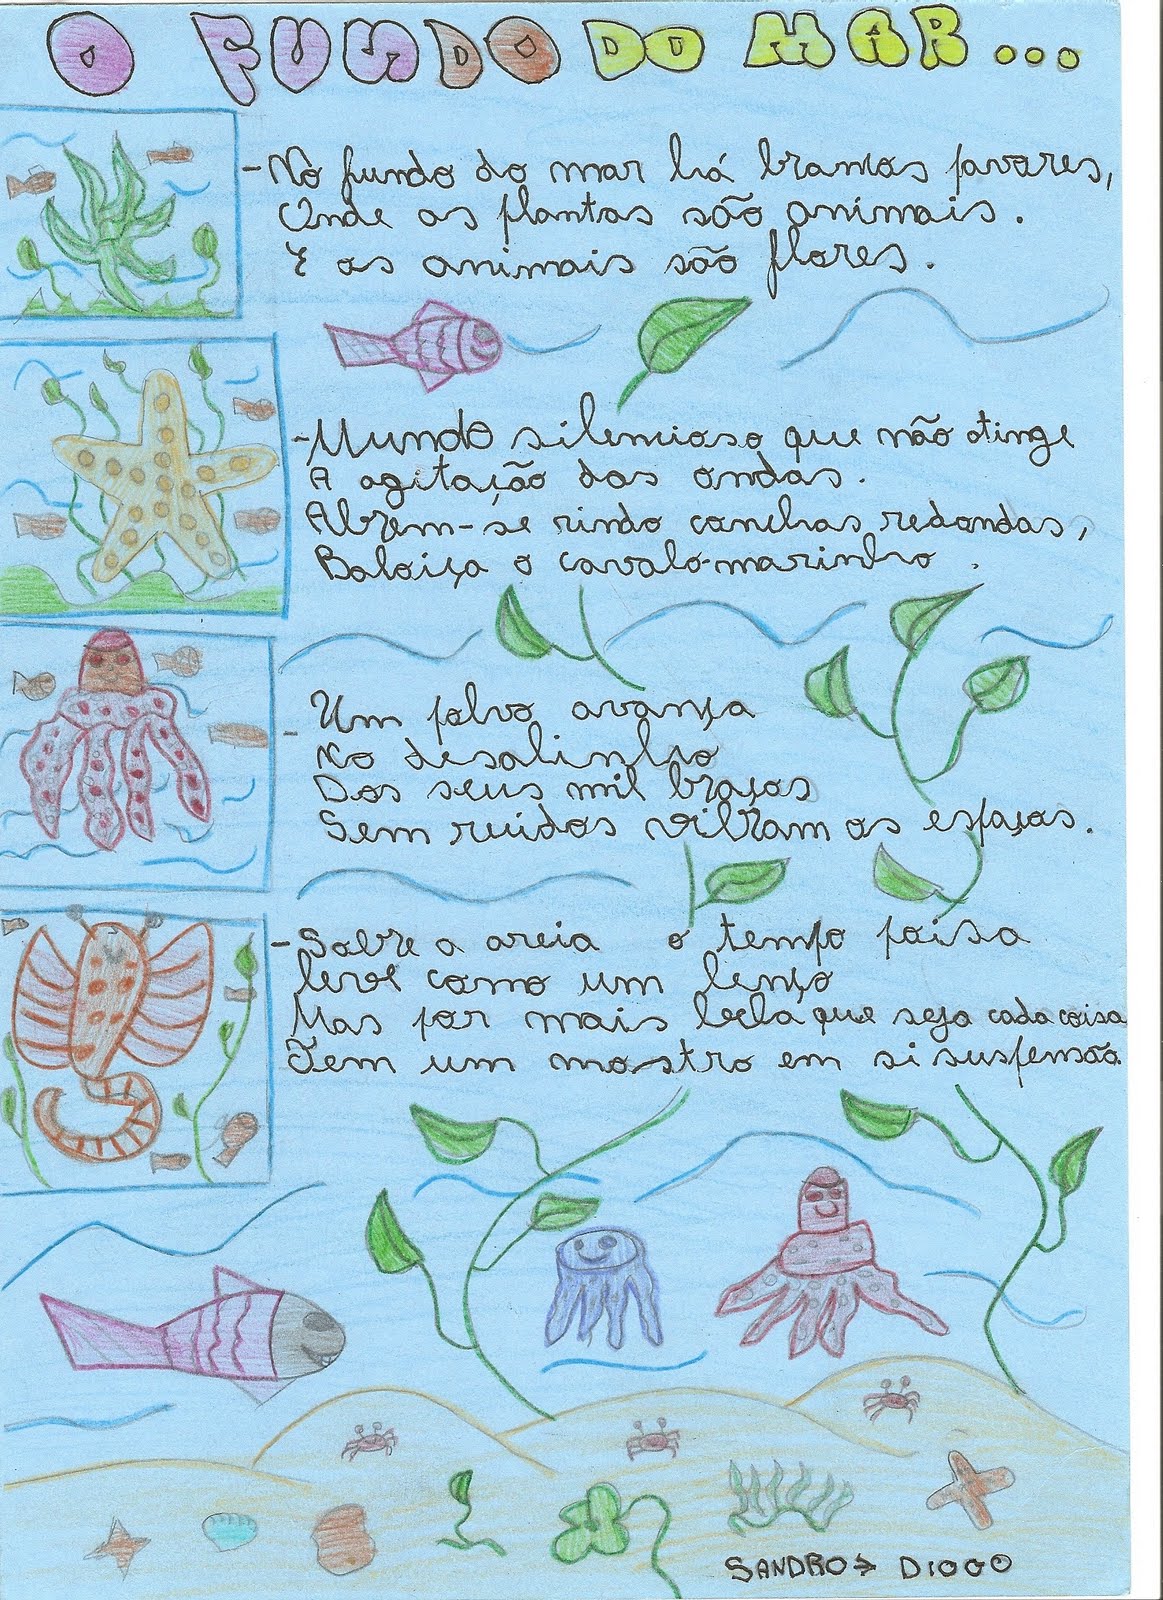 O FUNDO DO MAR...
-No fundo do mar há brancos pavores,
Onde as plantas são animais.
E os animais são flores.
-Mundo silencioso que não atinge
A agitação das ondas.
Abrem-se rindo conchas redondas,
Baloiça o cavalo-marinho.
- Um polvo avança
No desalinho
Dos seus mil braços
Sem ruidos vibram os espaços.
-Sobre a areia o tempo poisa
leve como um lenço
Mas por mais bela que seja cada coisa
Tem um mostro em si suspensão
SANDRO → DIOGO